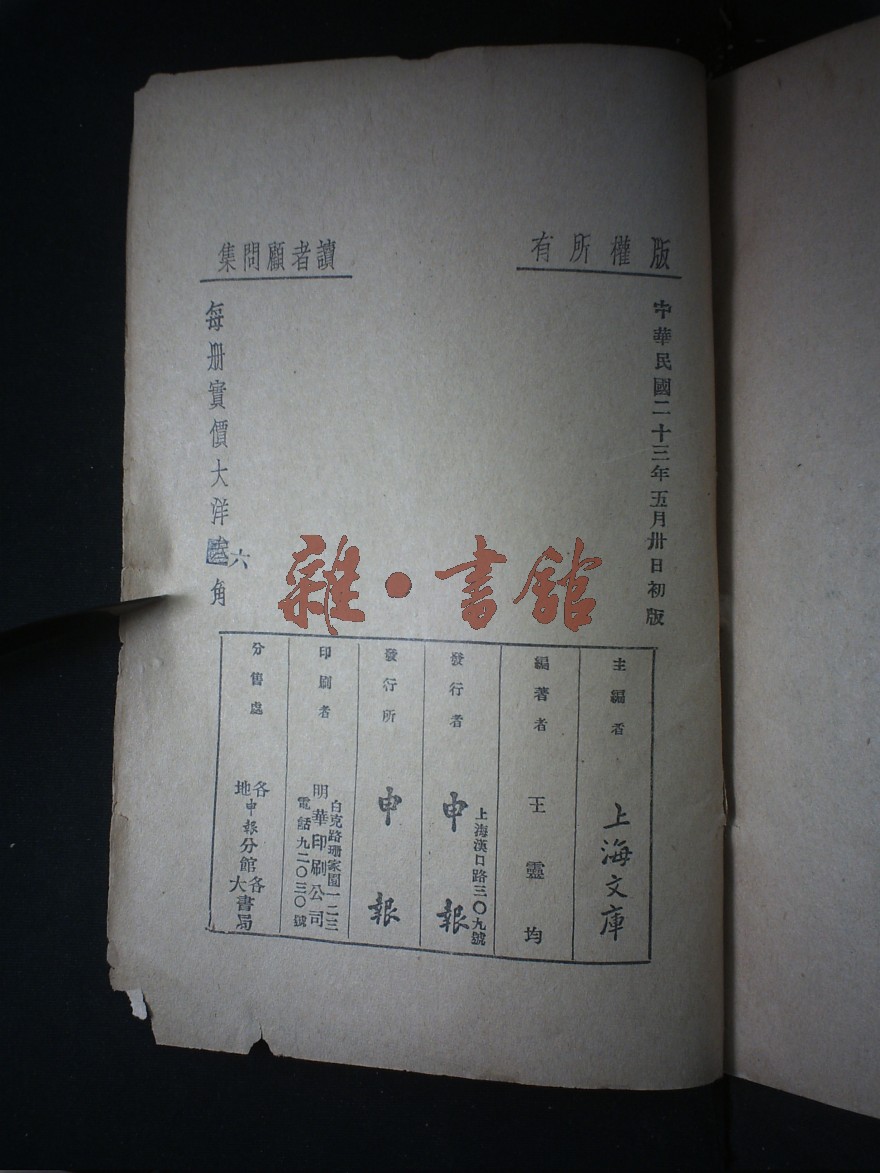 版權所有
中華民國二十三年五月卅日初版
讀者顧問集
每册實價大洋六角
雜·書館
主編者 上海文庫
編著者 王靈均
發行者 上海漢口路三〇九號
申報
發行所 申報
印刷者 白克路珊家園一二三
明華印刷公司
電話九二〇三〇號
分售處 各地申報分館各大書局